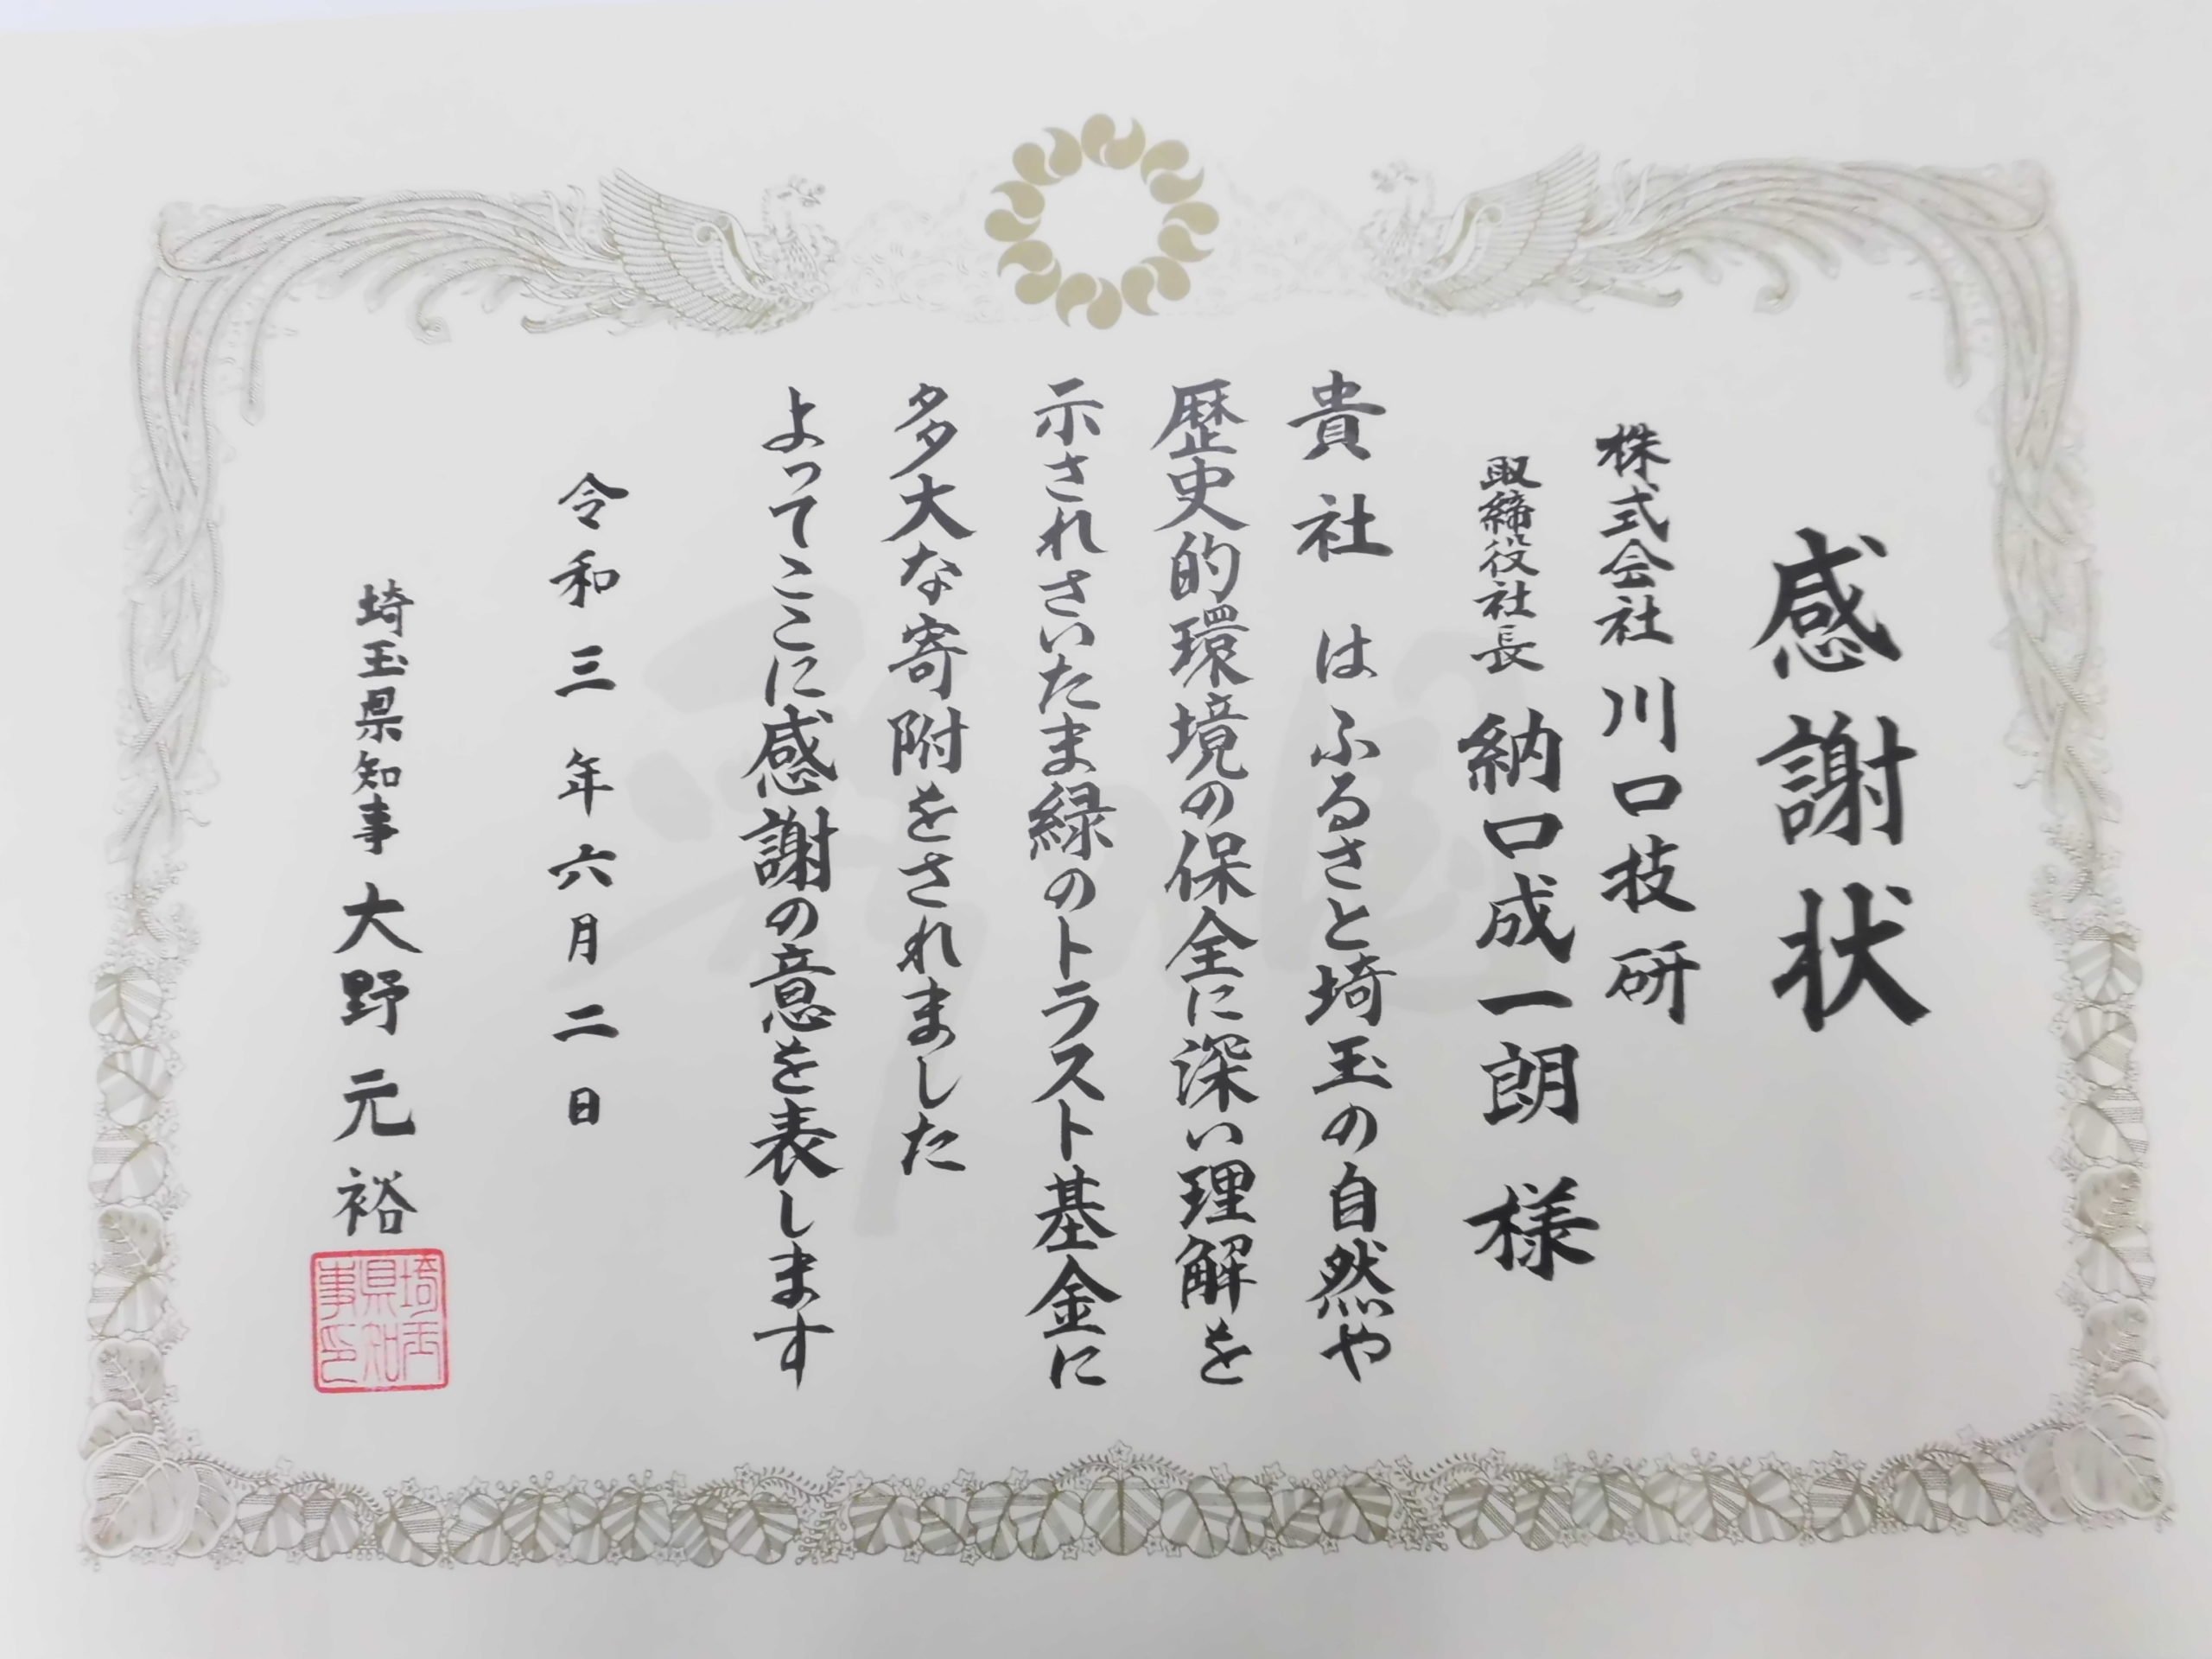 感謝状
株式会社 川口技研
取締役社長 納口成一朗 様
貴社はふるさと埼玉の自然や
歴史的環境の保全に深い理解を
示されさいたま緑のトラスト基金に
多大な寄附をされました
よってここに感謝の意を表します
令和三年六月二日
埼玉県知事 大野元裕
埼玉
県知
事印
彩の国